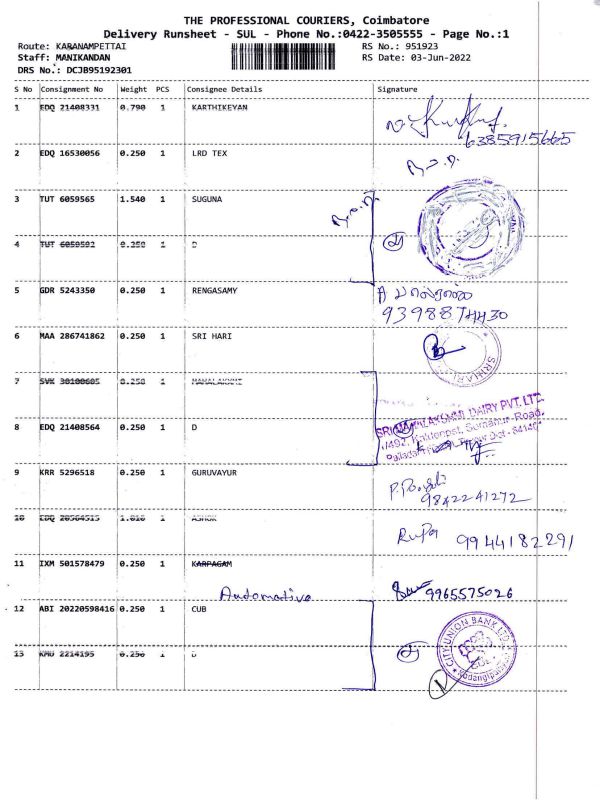 THE PROFESSIONAL COURIERS, Coimbatore
Delivery Runsheet - SUL - Phone No.:0422-3505555 - Page No.:1
Route: KARANAMPETTAI RS No.: 951923
Staff: MANIKANDAN RS Date: 03-Jun-2022
DRS No.: DCJB95192301
S No Consignment No Weight PCS Consignee Details Signature
1 EDQ 21408331 0.790 1 KARTHIKEYAN
6385915665
2 EDQ 16530056 0.250 1 LRD TEX
3 TUT 6059565 1.540 1 SUGUNA
4 TUT 6059592 0.250 1 D
5 GDR 5243350 0.250 1 RENGASAMY
6 MAA 286741862 0.250 1 SRI HARI
SRIHARI
7 SVK 30100605 0.250 1 MAHALAKXMI
8 EDQ 21408564 0.250 1 D
SRI MAHALAKSHMI DAIRY PVT. LTD.
Road,
9 KRR 5296518 0.250 1 GURUVAYUR
9842241272
10 EDQ 20564515 1.010 1 ASHOK
Rupa 9944182291
11 IXM 501578479 0.250 1 KARPAGAM
Automotive 9965575026
12 ABI 20220598416 0.250 1 CUB
CITY UNION BANK LTD
13 KMU 2214195 0.250 1 D